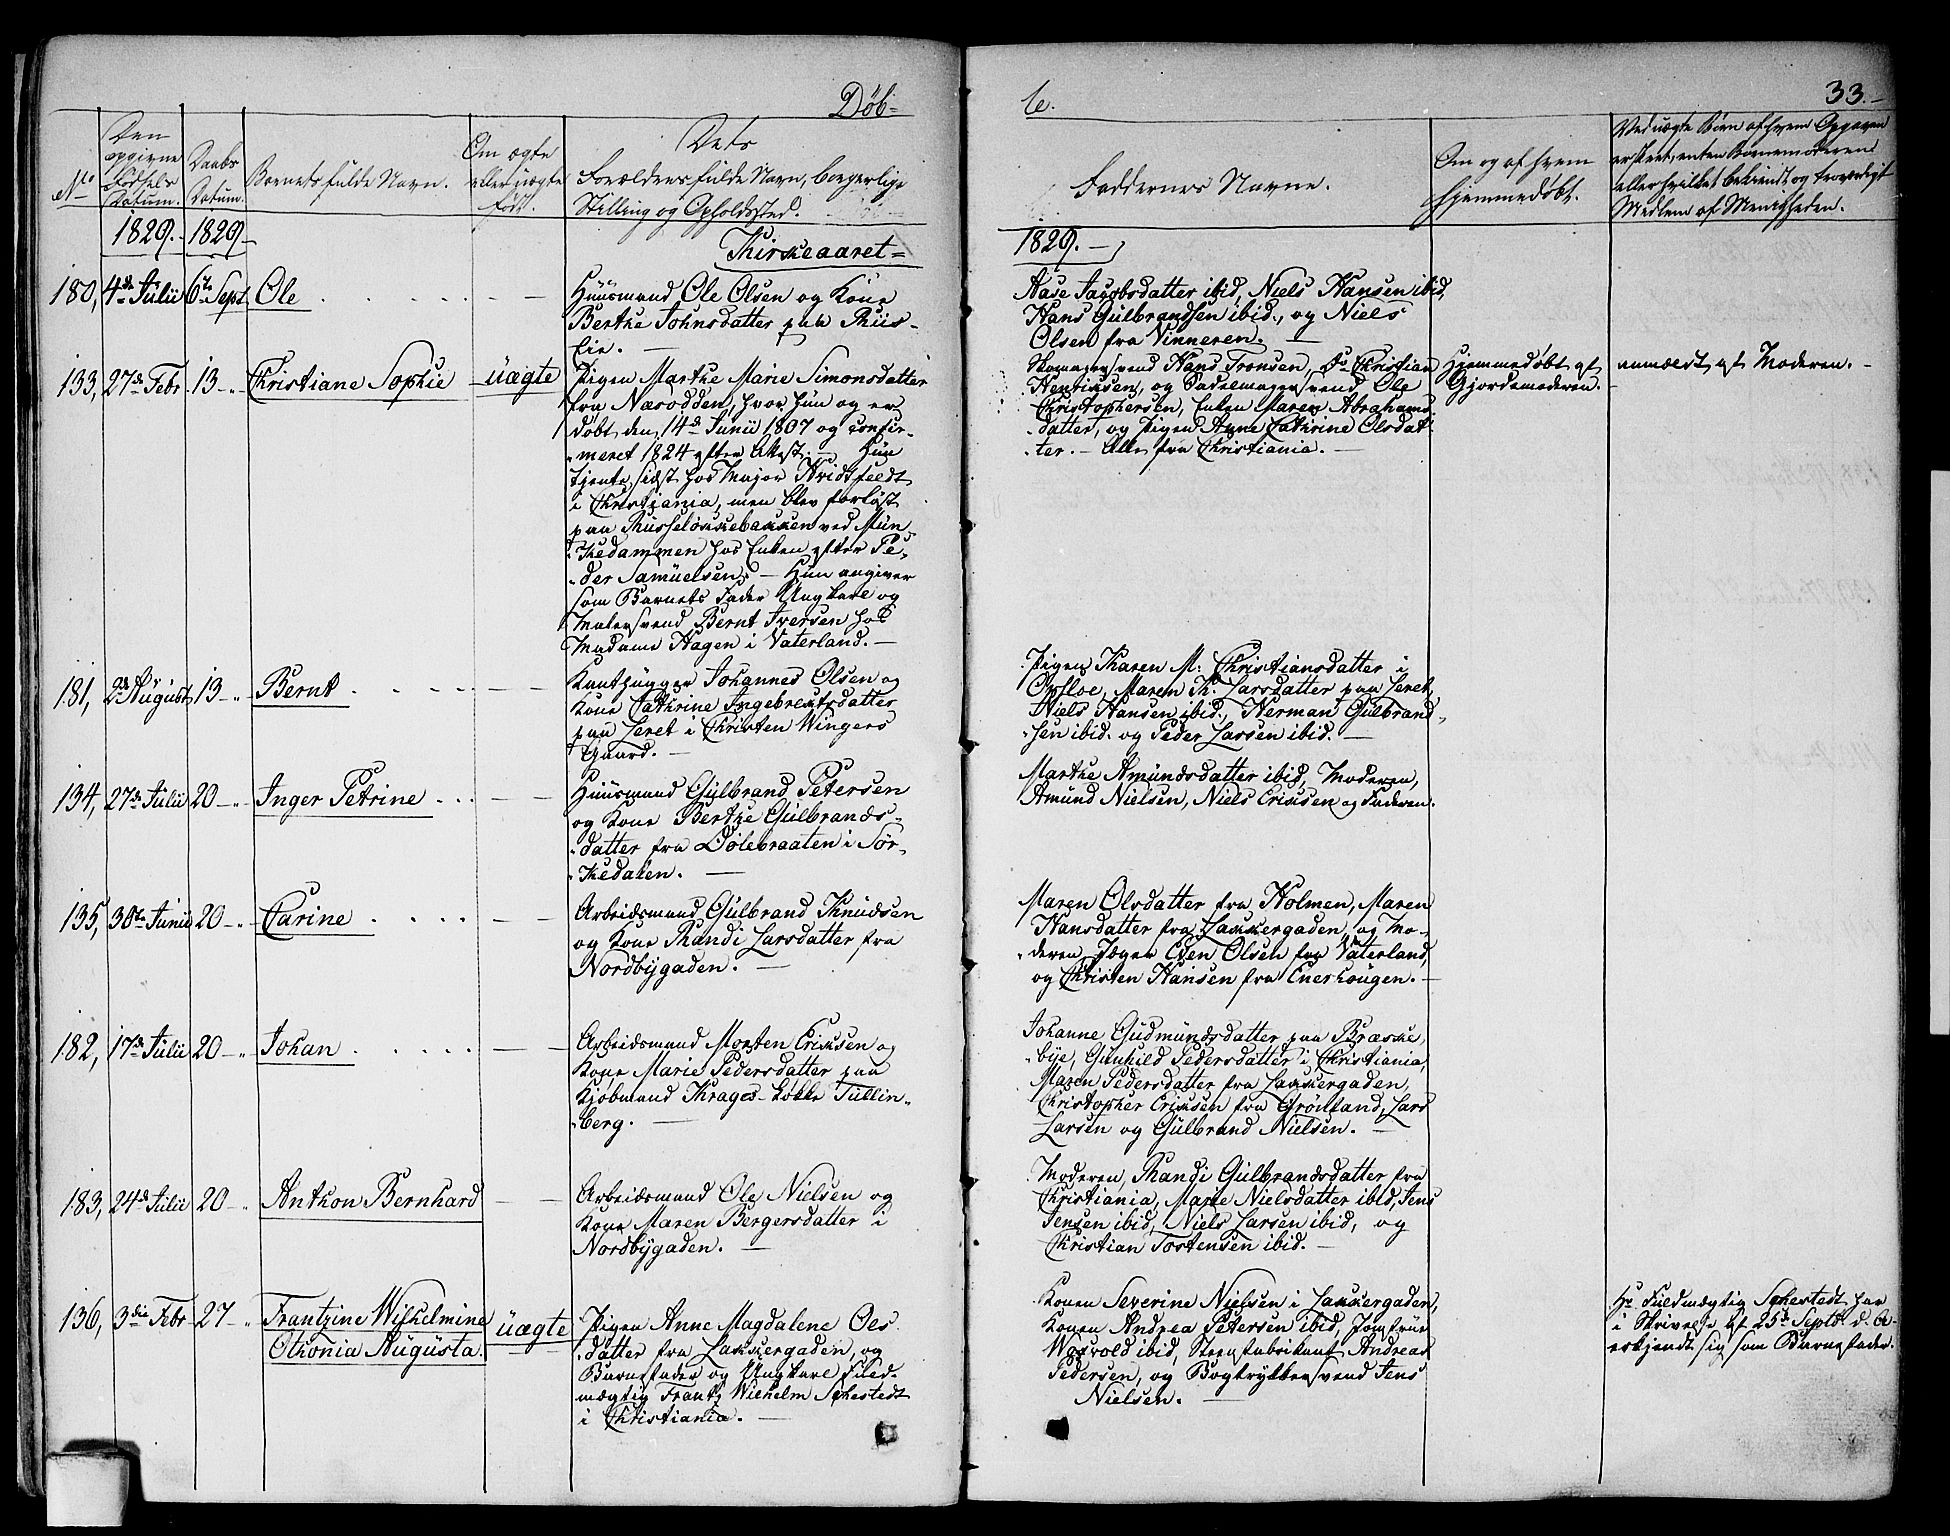 Døb-
No
Den opgivne Fødsels Datum.
Daabs Datum.
Barnets fulde Navn.
Om ægte eller uægte født.
Dets
Forældres fulde Navn, borgerlige
Stilling og Opholdssted.
1829. 1829
Kirkeaaret
180, 4de Julii 6te Sept. Ole
Huusmand Ole Olsen og Kone
Berthe Johnsdatter paa Riis-
Eie.
133, 27de Febr 13 Christiane Sophie uægte
Pigen Marthe Marie Simonsdatter
fra Næsodden, hvor hun og er
døbt den 14de Junii 1807 og confir-
meret 1824 efter Attest. Hun
tjente sidst hos Major Hvidtfeldt
i Christiania, men blev forløst
paa Russeløkkebakken ved Mun-
kedammen hos Enken efter Pe-
der Samuelsen. Hun angiver
som Barnets Fader Ungkarl og
Malersvend Bernt Iversen hos
Madame Hagen i Vaterland.
181, 2den August 13 Bernt
Kanthugger Johannes Olsen og
Kone Cathrine Ingebregtsdatter
paa Leret i Christen Wingers
Gaard.
134, 27de Julii 20 Inger Petrine
Huusmand Gulbrand Petersen
og Kone Berthe Gulbrands-
datter fra Dølebraaten i Sør-
kedalen.
135, 30te Junii 20 Carine
Arbeidsmand Gulbrand Knudsen
og Kone Randi Larsdatter fra
Nordbygaden.
182, 17de Julii 20 Johan
Arbeidsmand Morten Eriksen og
Kone Marie Pedersdatter paa
Kjøbmand Krages Løkke Tullin-
berg.
183, 24de Julii 20 Anthon Bernhard
Arbeidsmand Ole Nielsen og
Kone Maren Bergersdatter i
Nordbygaden.
136, 3die Febr 27 Frantzine Wilhelmine
Othonia Augusta. uægte
Pigen Anne Magdalene Ols-
datter fra Lakkergaden, og
Barnefader og Ungkarl Fuld-
mægtig Frantz Wilhelm Sehestedt
i Christiania.
te.
33.
Faddernes Navne.
Om og af hvem
hjemmedøbt.
Ved uægte Børn af hvem Opgaven
er skeet, enten Barnemoderen
eller hvilket bekiendt og troværdigt
Medlem af Menigheden.
1829.
Aase Jacobsdatter ibid, Niels Hansen ibid,
Hans Gulbrandsen ibid., og Niels
Olsen fra Vinneren.
Skomagersvend Hans Tronsen, Do Christian
Henriksen, og Sadelmagersvend Ole
Christophersen, Enken Maren Abrahams-
datter, og Pigen Anne Cathrine Olsdat-
ter. Alle fra Christiania.
Hjemmedøbt af
Gjordemoderen.
anmeldt af Moderen.
Pigen Karen M: Christiansdatter i
Opsloe, Maren K. Larsdatter paa Leret,
Niels Hansen ibid., Herman Gulbrand-
sen ibid. og Peder Larsen ibid.
Marthe Amundsdatter ibid, Moderen,
Amund Nielsen, Niels Eriksen og Faderen.
Maren Olsdatter fra Holmen, Maren
Hansdatter fra Lakkergaden, og Mo-
deren, Even Olsen fra Vaterland,
og Christen Hansen fra Enerhougen.
Johanne Gudmundsdatter paa Bræske-
bye, Gunhild Pedersdatter i Christiania,
Maren Pedersdatter fra Lakkergaden,
Christopher Eriksen fra Grønland, Lars
Larsen og Gulbrand Nielsen.
Moderen, Randi Gulbrandsdatter fra
Christiania, Marte Nielsdatter ibid, Jens
Jensen ibid, Niels Larsen ibid, og
Christian Tostensen ibid.
Konen Severine Nielsen i Lakkergaden,
Konen Andrea Petersen ibid, Jomfrue
Woxvold ibid, Andreas
Pedersen, og Bogtrykkersvend Jens
Nielsen.
Hr Fuldmægtig Sehestedt har
i Skrivelse af 25de Septbr d. A.
erkjendt sig som Barnefader.